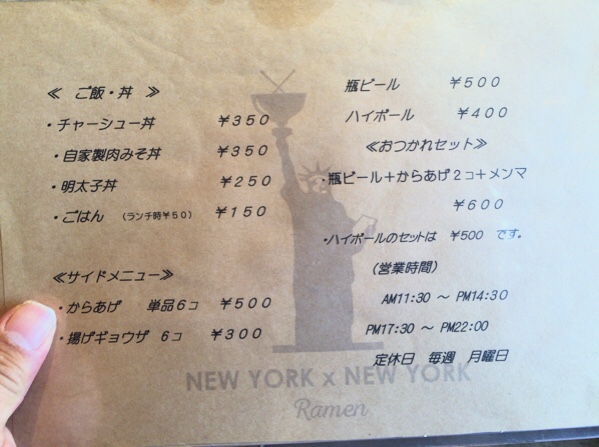 ≪ ご飯・丼 ≫
・チャーシュー丼 ￥350
・自家製肉みそ丼 ￥350
・明太子丼 ￥250
・ごはん （ランチ時￥50） ￥150
≪サイドメニュー≫
・からあげ 単品6コ ￥500
・揚げギョウザ 6コ ￥300
瓶ビール ￥500
ハイボール ￥400
≪おつかれセット≫
・瓶ビール＋からあげ2コ＋メンマ
￥600
・ハイボールのセットは ￥500 です。
（営業時間）
AM11:30 ～ PM14:30
PM17:30 ～ PM22:00
定休日 毎週 月曜日
NEW YORK x NEW YORK
Ramen